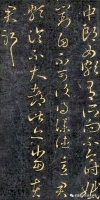 中郎女頗有所向不今時婚
對自不可復得僕往意君
頗論不大都此亦當在
君邪